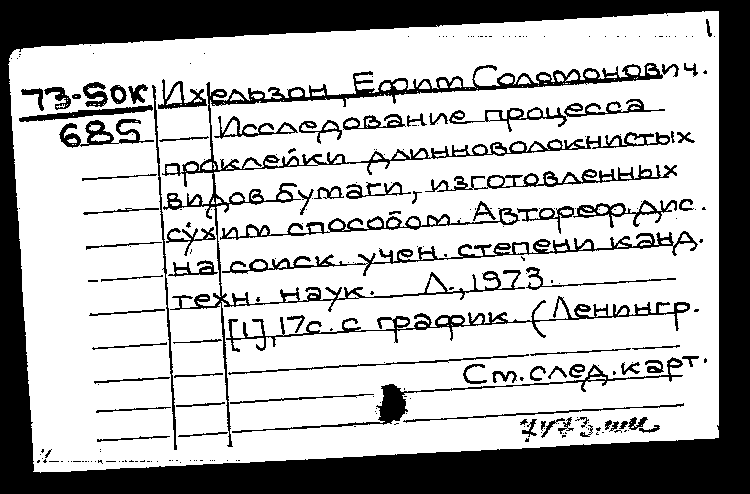 1
73-50К Ихельзон, Ефим Соломонович.
685 Исследование процесса
проклейки длинноволокнистых
видов бумаги, изготовленных
сухим способом. Автореф. дис.
на соиск. учен. степени канд.
техн. наук. Л., 1973.
[1], 17с. с график. (Ленингр.
См. след. карт.